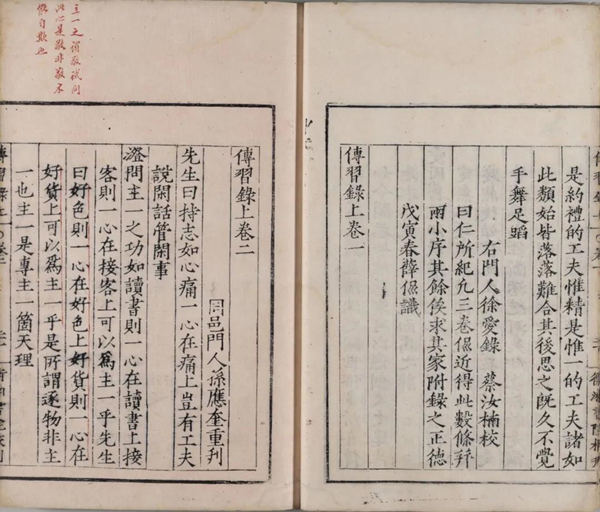 是約禮的工夫惟精是惟一的工夫諸如
此類始皆落落難合其後思之既久不覺
手舞足蹈
右門人徐愛錄 蔡汝楠校
曰仁所紀凢三卷侃近得此數條并
兩小序其餘俟求其家附錄之正德
戊寅春薛侃識
傳習錄上卷一
傳習錄上卷二
同邑門人孫應奎重刋
先生曰持志如心痛一心在痛上豈有工夫
說閑話管閑事
澄問主一之功如讀書則一心在讀書上接
客則一心在接客上可以爲主一乎先生
曰好色則一心在好色上好貨則一心在
好貨上可以爲主一乎是所謂逐物非主
一也主一是專主一箇天理
主一之謂敬試問
此心是敬非敬不
自欺也